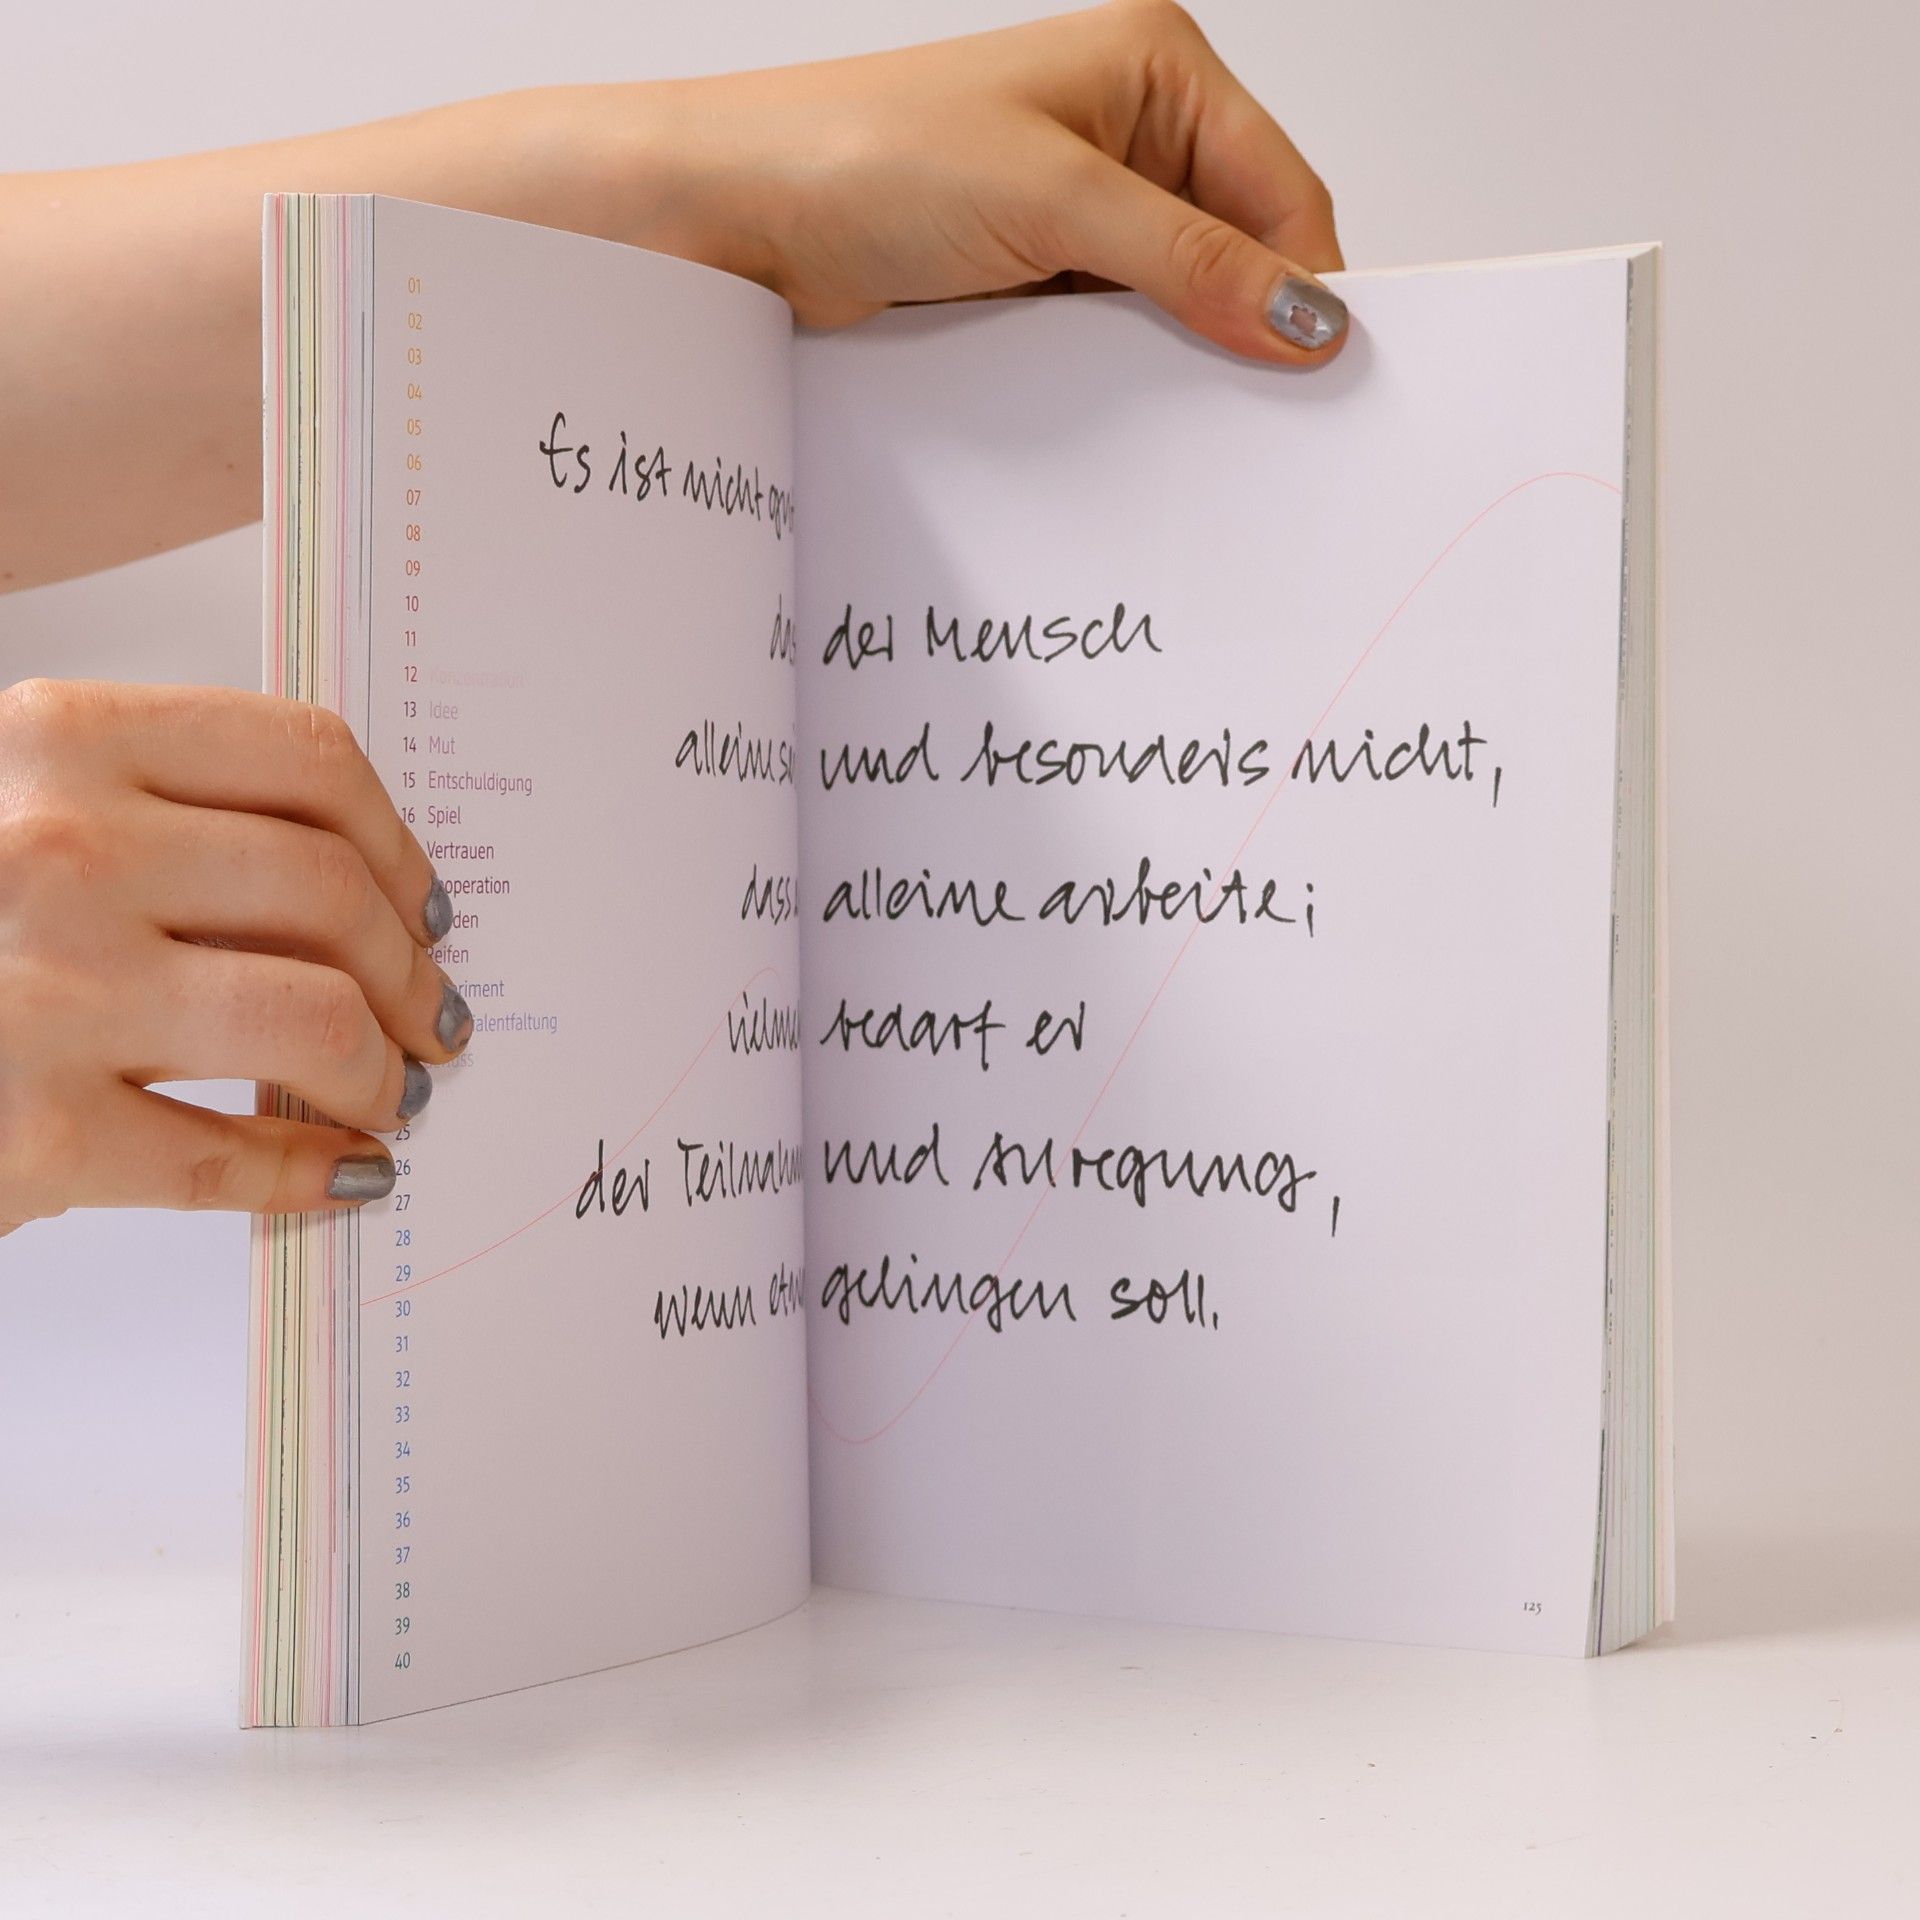 01
02
03
04
05
06
07
08
09
10
11
12 Konzentration
13 Idee
14 Mut
15 Entschuldigung
16 Spiel
Vertrauen
ooperation
den
Reifen
riment
ialentfaltung
25
26
27
28
29
30
31
32
33
34
35
36
37
38
39
40
Es ist nicht gut
dass der Mensch
alleine sei und besonders nicht,
dass alleine arbeite;
vielmeh bedarf er
der Teilnahm und Anregung,
wenn etw gelingen soll.
125